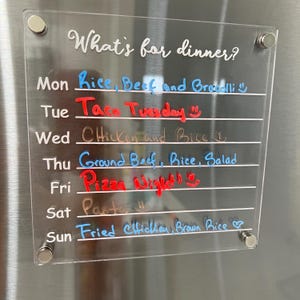 What's for dinner?
Mon Rice, Beef and Brocolli
Tue Taco Tuesday
Wed Chicken and Rice
Thu Ground Beef, Rice, Salad
Fri Pizza Night!
Sat Pasta
Sun Fried Chicken, Brown Rice ♡